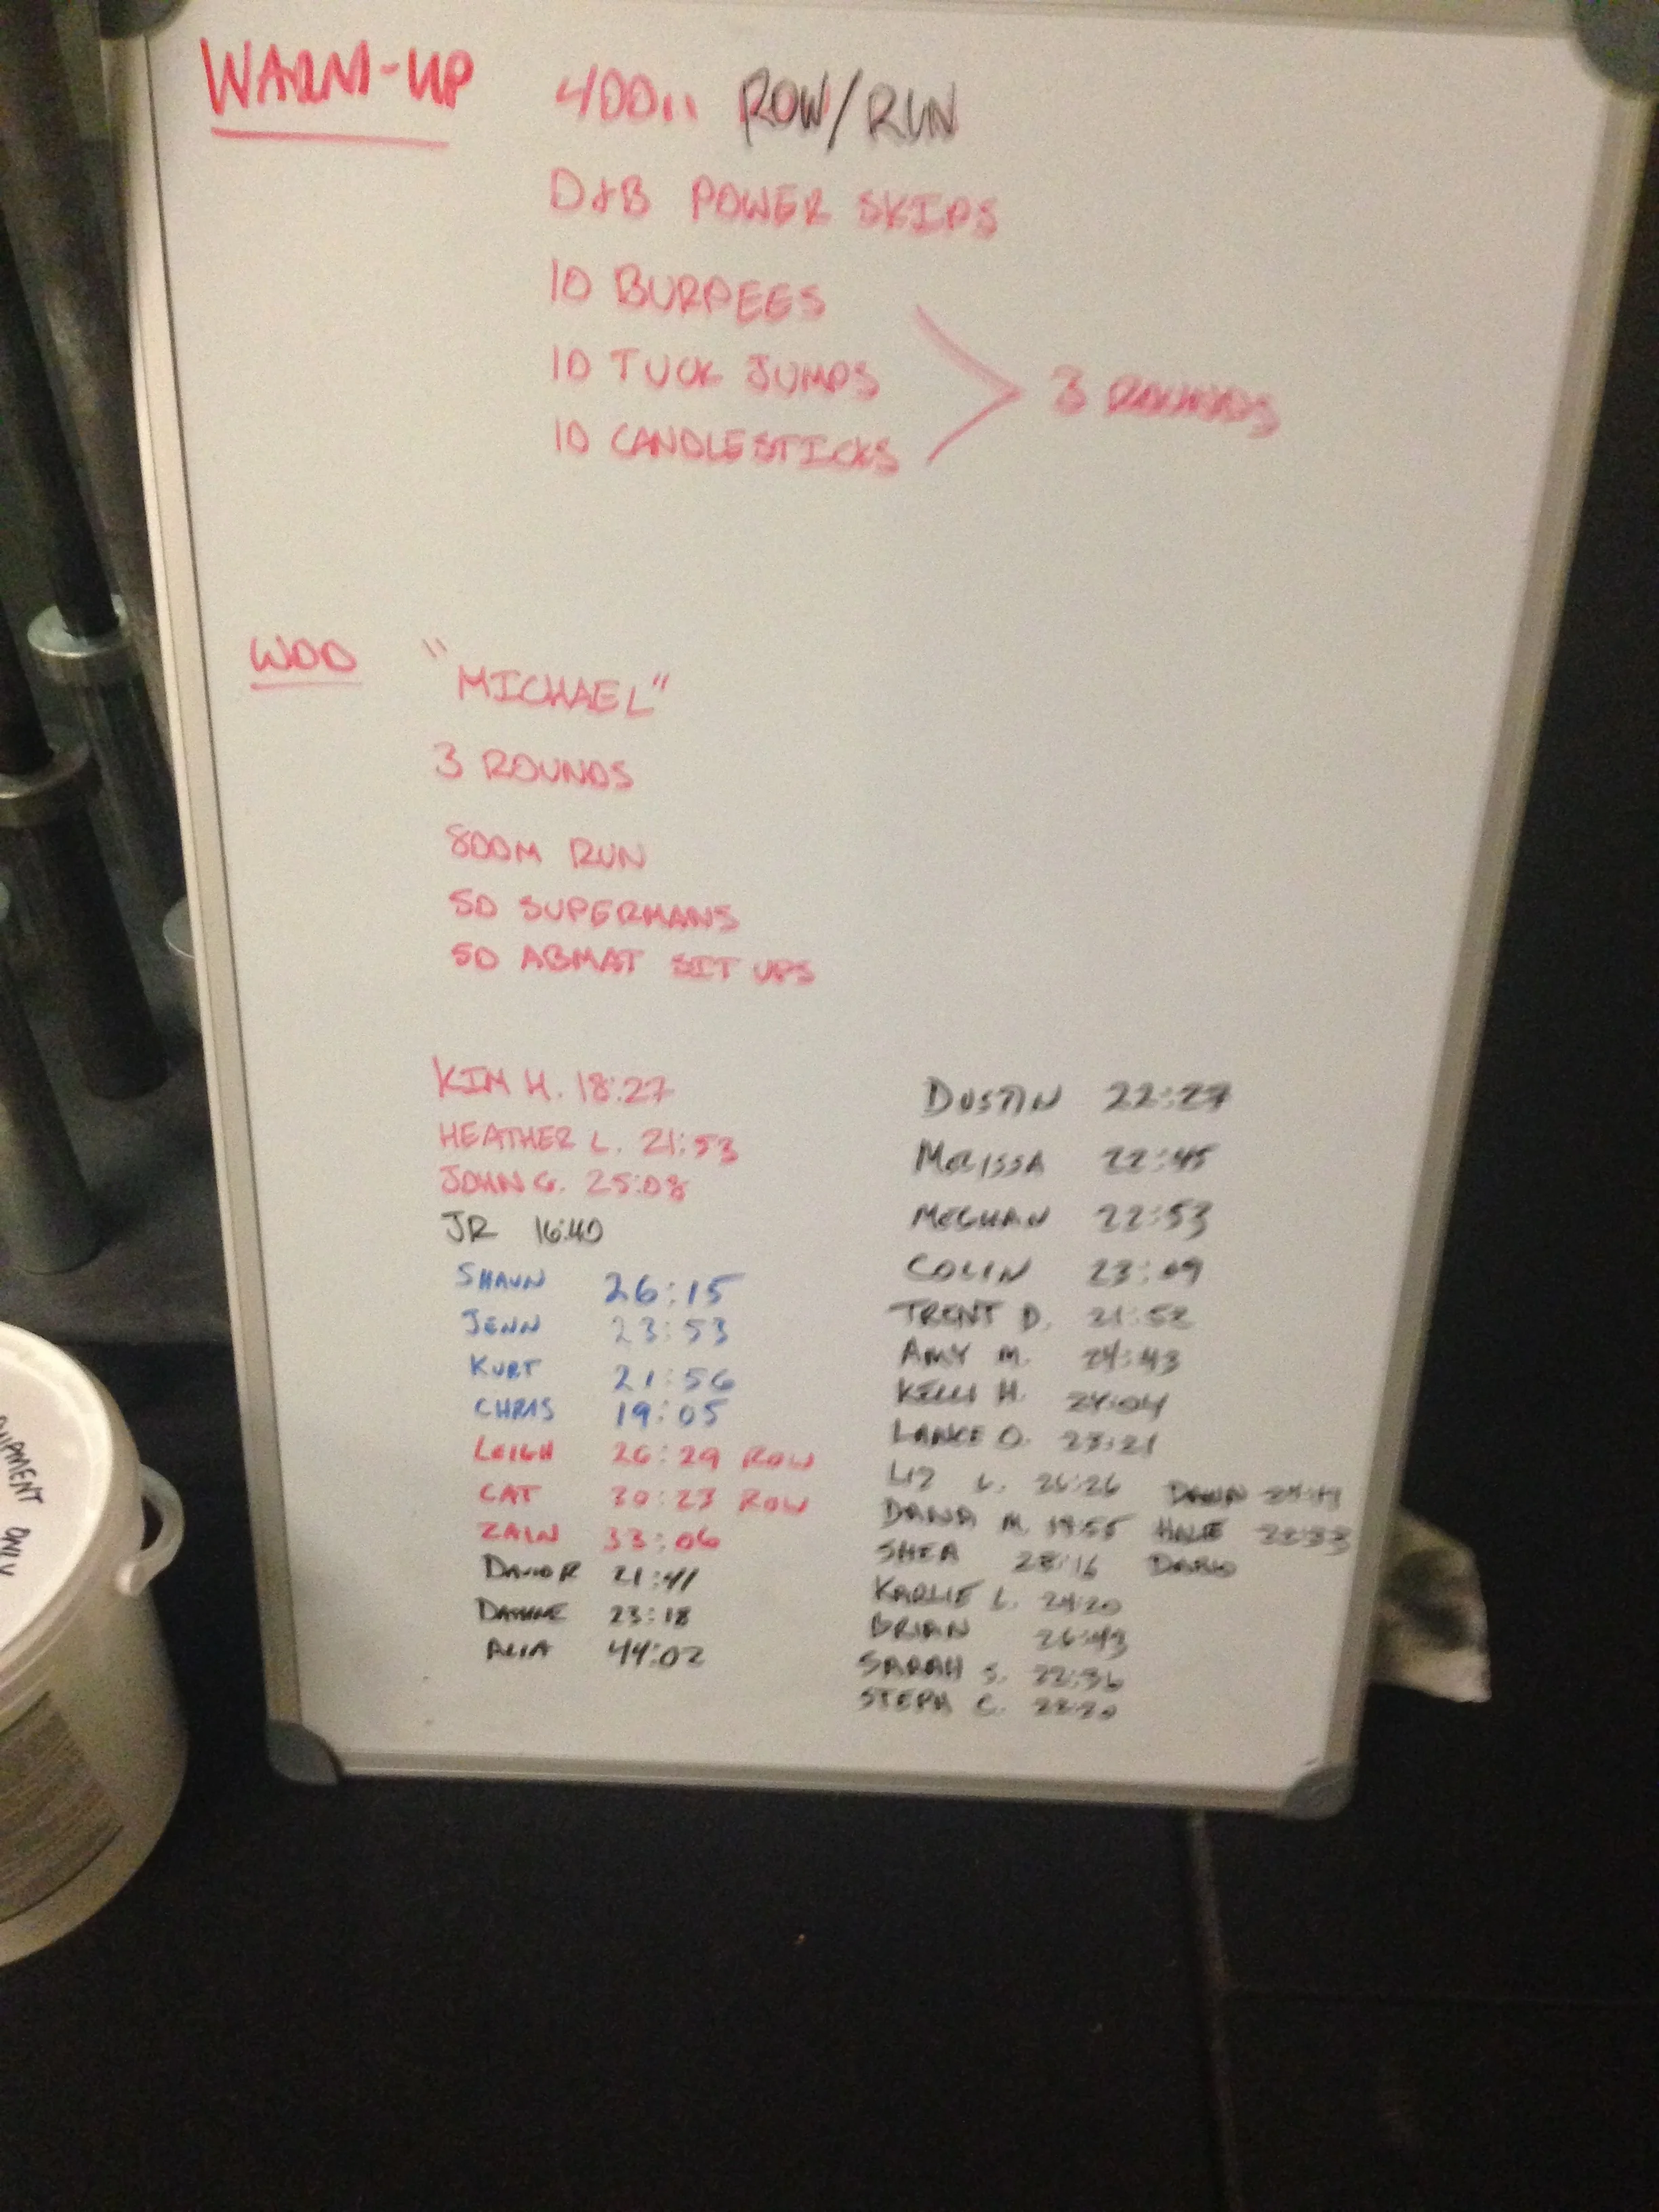 WARM-UP 400M ROW/RUN
D+B POWER SKIPS
10 BURPEES
10 TUCK JUMPS
3 ROUNDS
10 CANDLESTICKS
WOD "MICHAEL"
3 ROUNDS
800M RUN
50 SUPERMANS
50 ABMAT SIT UPS
KIM H. 18:27
HEATHER L. 21:53
JOHN G. 25:08
JR 16:40
SHAUN 26:15
JENN 23:53
KURT 21:56
CHRIS 19:05
LEIGH 26:29 ROW
CAT 30:23 ROW
ZAIN 33:06
DAVID R 21:41
23:18
ALIA 44:02
DUSTIN 22:27
MELISSA 22:45
MEGHAN 22:53
COLIN 23:09
TRENT D. 21:52
AMY M. 24:43
KELLI H. 24:04
LANCE O. 23:21
LIZ L. 26:26 DAWN
DANA M. 19:55
SHEA 28:16
KARLIE L. 24:20
BRIAN 26:43
SARAH S. 22:36
STEPH C.
EQUIPMENT ONLY